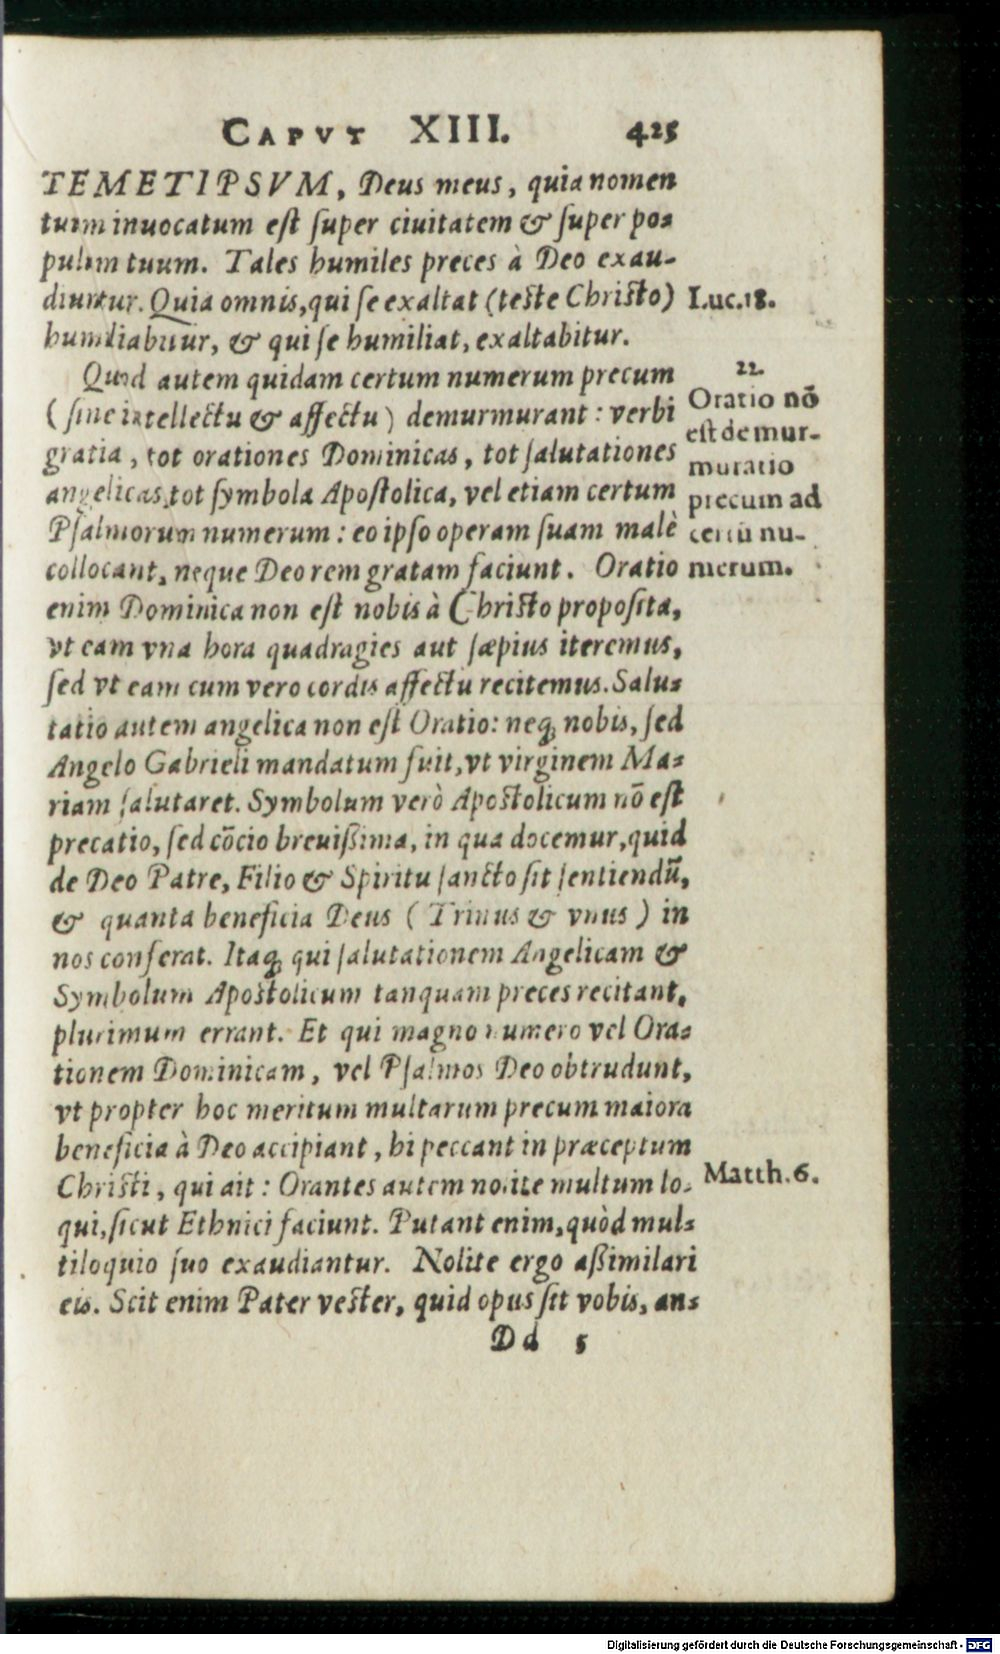 CAPVT XIII. 425
TEMETIPSVM, Deus meus, quia nomen
tuum inuocatum est super ciuitatem & super po-
pulum tuum. Tales humiles preces à Deo exau-
diuntur. Quia omnis, qui se exaltat (teste Christo)
Luc. 18.
humiliabitur, & qui se humiliat, exaltabitur.
Quod autem quidam certum numerum precum
(sine intellectu & affectu) demurmurant: verbi
gratia, tot orationes Dominicas, tot salutationes
angelicas, tot symbola Apostolica, vel etiam certum
Psalmorum numerum: eo ipso operam suam malè
collocant, neque Deo rem gratam faciunt. Oratio
22.
Oratio nõ
est demur-
muratio
precum ad
certũ nu-
merum.
enim Dominica non est nobis à Christo proposita,
vt eam vna hora quadragies aut sæpius iteremus,
sed vt eam cum vero cordis affectu recitemus. Salu-
tatio autem angelica non est Oratio: neq; nobis, sed
Angelo Gabrieli mandatum fuit, vt virginem Ma-
riam salutaret. Symbolum verò Apostolicum nõ est
precatio, sed cõcio breuißima, in qua docemur, quid
de Deo Patre, Filio & Spiritu sancto sit sentiendũ,
& quanta beneficia Deus (Trinus & vnus) in
nos conferat. Itaq; qui salutationem Angelicam &
Symbolum Apostolicum tanquam preces recitant,
plurimum errant. Et qui magno numero vel Ora-
tionem Dominicam, vel Psalmos Deo obtrudunt,
vt propter hoc meritum multarum precum maiora
beneficia à Deo accipiant, hi peccant in præceptum
Christi, qui ait: Orantes autem nolite multum lo-
Matth. 6.
qui, sicut Ethnici faciunt. Putant enim, quòd mul-
tiloquio suo exaudiantur. Nolite ergo aßimilari
eis. Scit enim Pater vester, quid opus sit vobis, an-
Dd 5
Digitalisierung gefördert durch die Deutsche Forschungsgemeinschaft - DFG